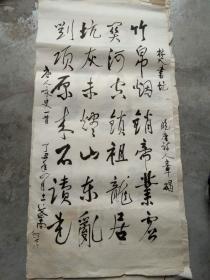 焚書坑 晚唐詩人章碣
竹帛烟銷帝業虛
關河空鎖祖龍居
坑灰未燼山東亂
劉項原來不讀書
唐人咏史一首 丁丑年四月